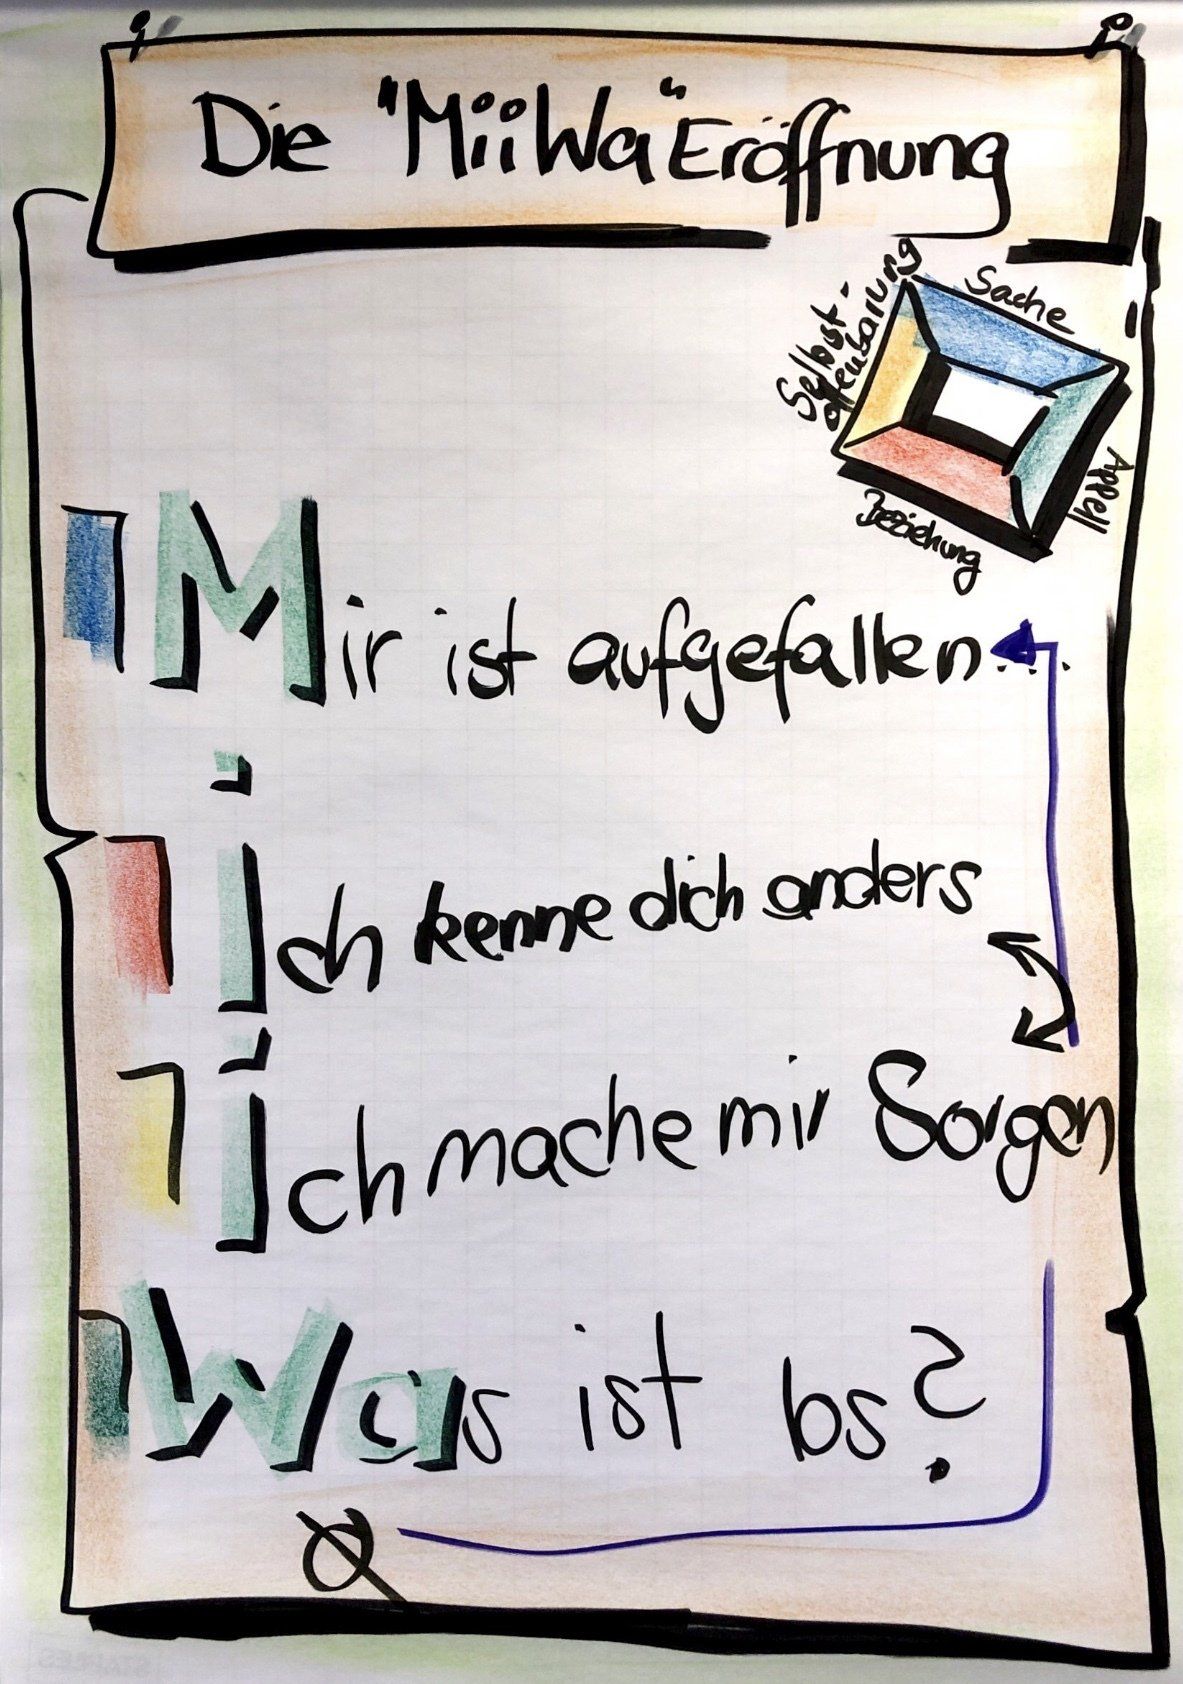 Die "MiiWa" Eröffnung
Sache
Selbst-
offenbarung
Appell
Beziehung
Mir ist aufgefallen...
Ich kenne dich anders
Ich mache mir Sorgen
Was ist los?
STAPLES